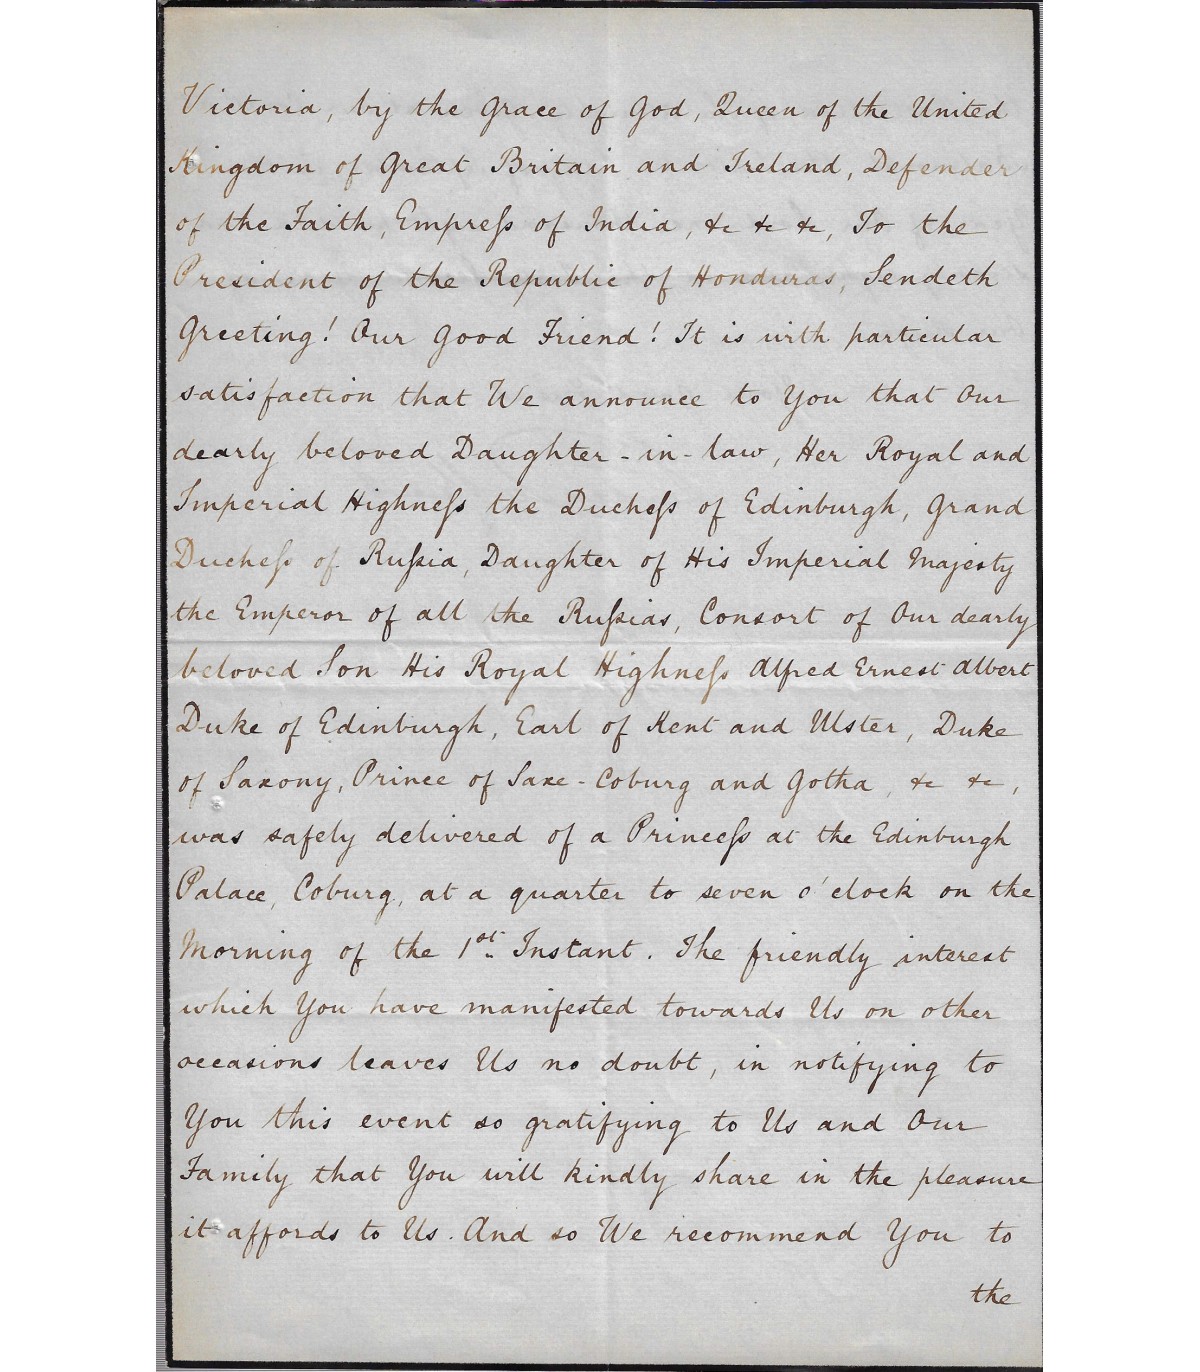 Victoria, by the Grace of God, Queen of the United
Kingdom of Great Britain and Ireland, Defender
of the Faith, Empreſs of India, &c &c &c, To the
President of the Republic of Honduras, Sendeth
Greeting! Our Good Friend! It is with particular
satisfaction that We announce to You that Our
dearly beloved Daughter-in-law, Her Royal and
Imperial Highneſs the Ducheſs of Edinburgh, Grand
Ducheſs of Ruſsia, Daughter of His Imperial Majesty
the Emperor of all the Ruſsias, Consort of Our dearly
beloved Son His Royal Highneſs Alfred Ernest Albert
Duke of Edinburgh, Earl of Kent and Ulster, Duke
of Saxony, Prince of Saxe-Coburg and Gotha, &c &c,
was safely delivered of a Princeſs at the Edinburgh
Palace, Coburg, at a quarter to seven o'clock on the
Morning of the 1st Instant. The friendly interest
which You have manifested towards Us on other
occasions leaves Us no doubt, in notifying to
You this event so gratifying to Us and Our
Family that You will kindly share in the pleasure
it affords to Us. And so We recommend You to
the